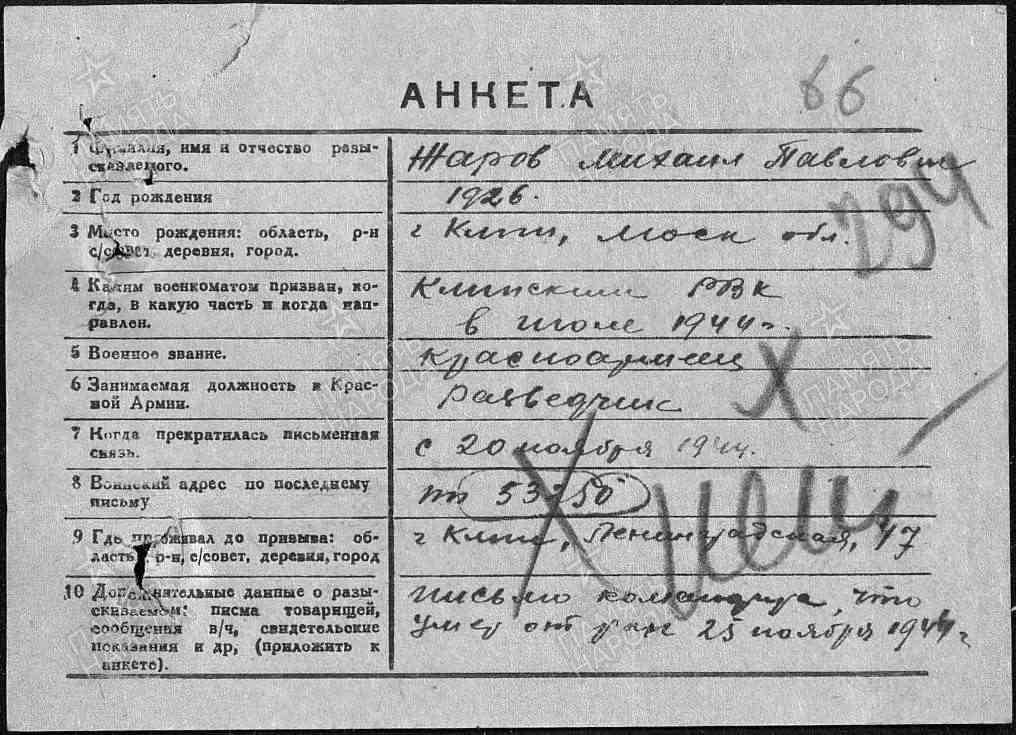 66
АНКЕТА
294
1 Фамилия, имя и отчество разы-
скиваемого.
Жаров Михаил Павлович
2 Год рождения
1926.
3 Место рождения: область, р-н
с/совет, деревня, город.
г Клин, Моск обл.
4 Каким военкоматом призван, ко-
гда, в какую часть и когда нап-
равлен.
Клинским РВК
в июле 1944 г.
5 Военное звание.
красноармеец
6 Занимаемая должность в Крас-
ной Армии.
разведчик
7 Когда прекратилась письменная
связь.
с 20 ноября 1944.
8 Воинский адрес по последнему
письму
пп 53250
9 Где проживал до призыва: об-
ласть, р-н, с/совет, деревня, город
г Клин, Ленинградская, 47
10 Дополнительные данные о разы-
скиваемом: писма товарищей,
сообщения в/ч, свидетельские
показания и др, (приложить к
анкете).
письмо командира, что
умер от ран 25 ноября 1944 г
ПАМЯТЬ
НАРОДА